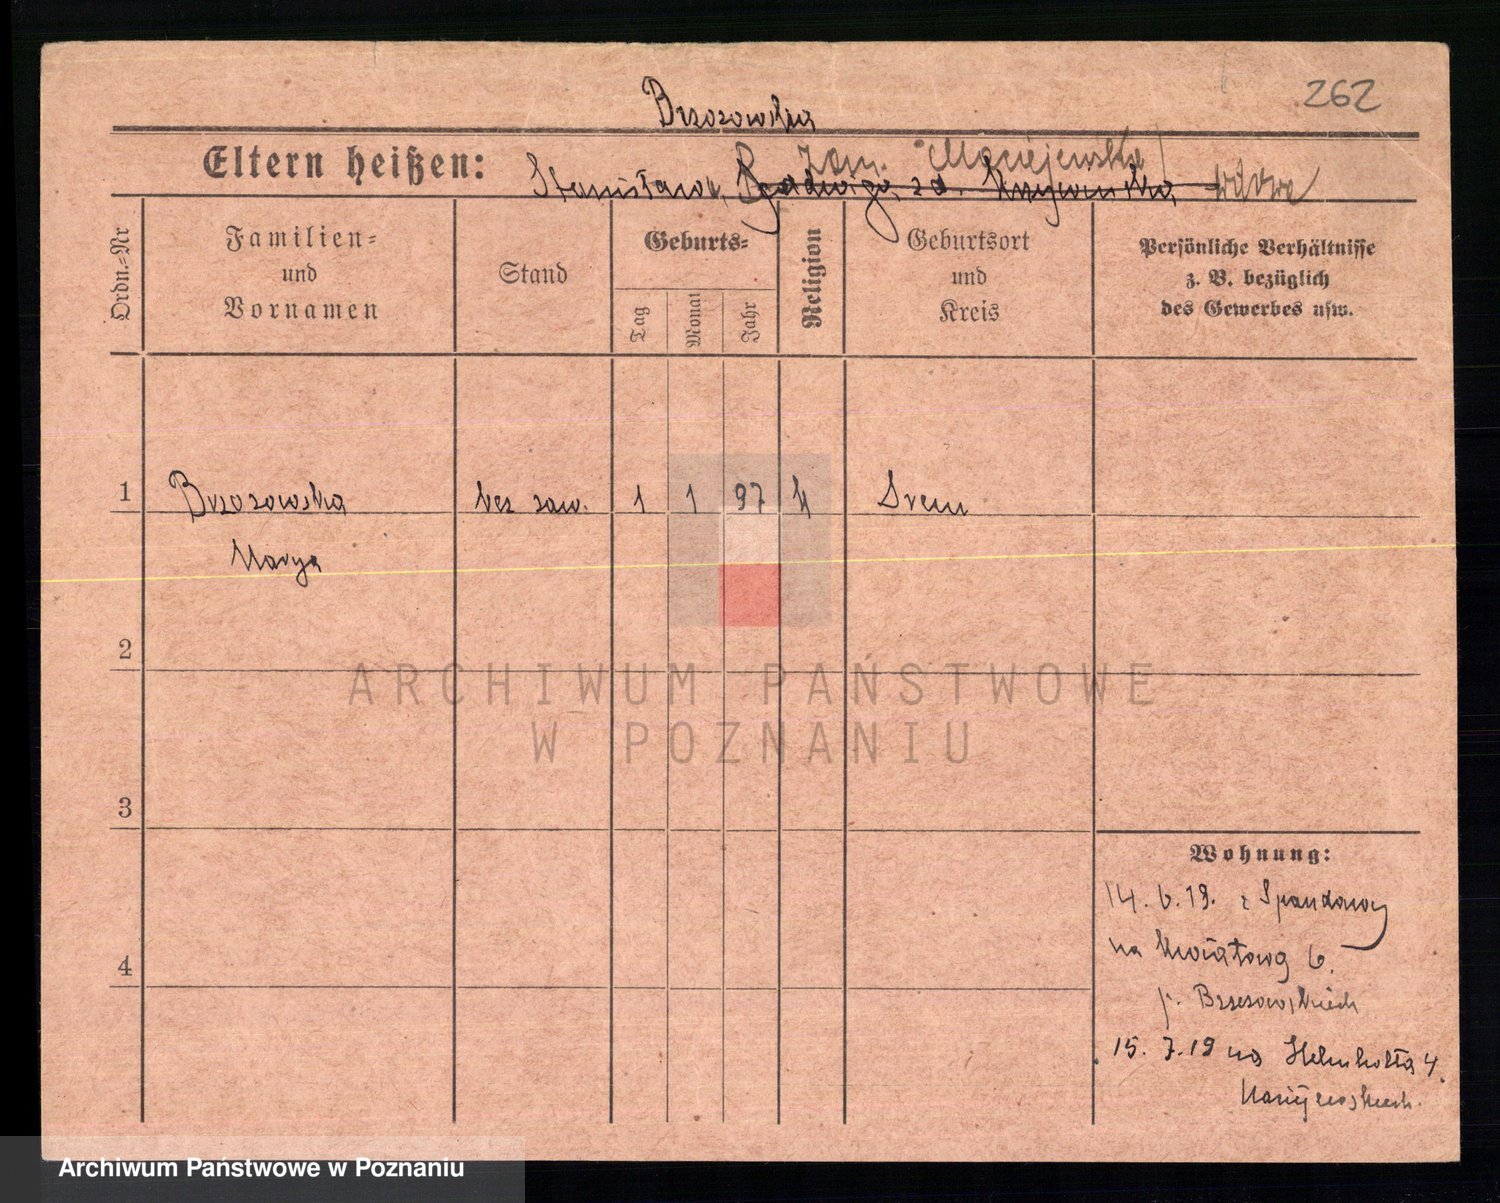 262
Brzozowska
Eltern heißen:
zam. Maciejewska
Stanisław, Jadwiga zd. wdowa
Ordn.-Nr
Familien-
und
Vornamen
Stand
Geburts-
Tag
Monat
Jahr
Religion
Geburtsort
und
Kreis
Persönliche Verhältnisse
z. B. bezüglich
des Gewerbes usw.
1 Brzozowska bez zaw. 1 1 97 k Śrem
Marya
2
3
4
Wohnung:
14.6.19. z Spandawy
na Kwiatową 6.
p. Brzozowskich
15.7.19 na Helmholta 4.
ARCHIWUM PAŃSTWOWE
W POZNANIU
Archiwum Państwowe w Poznaniu